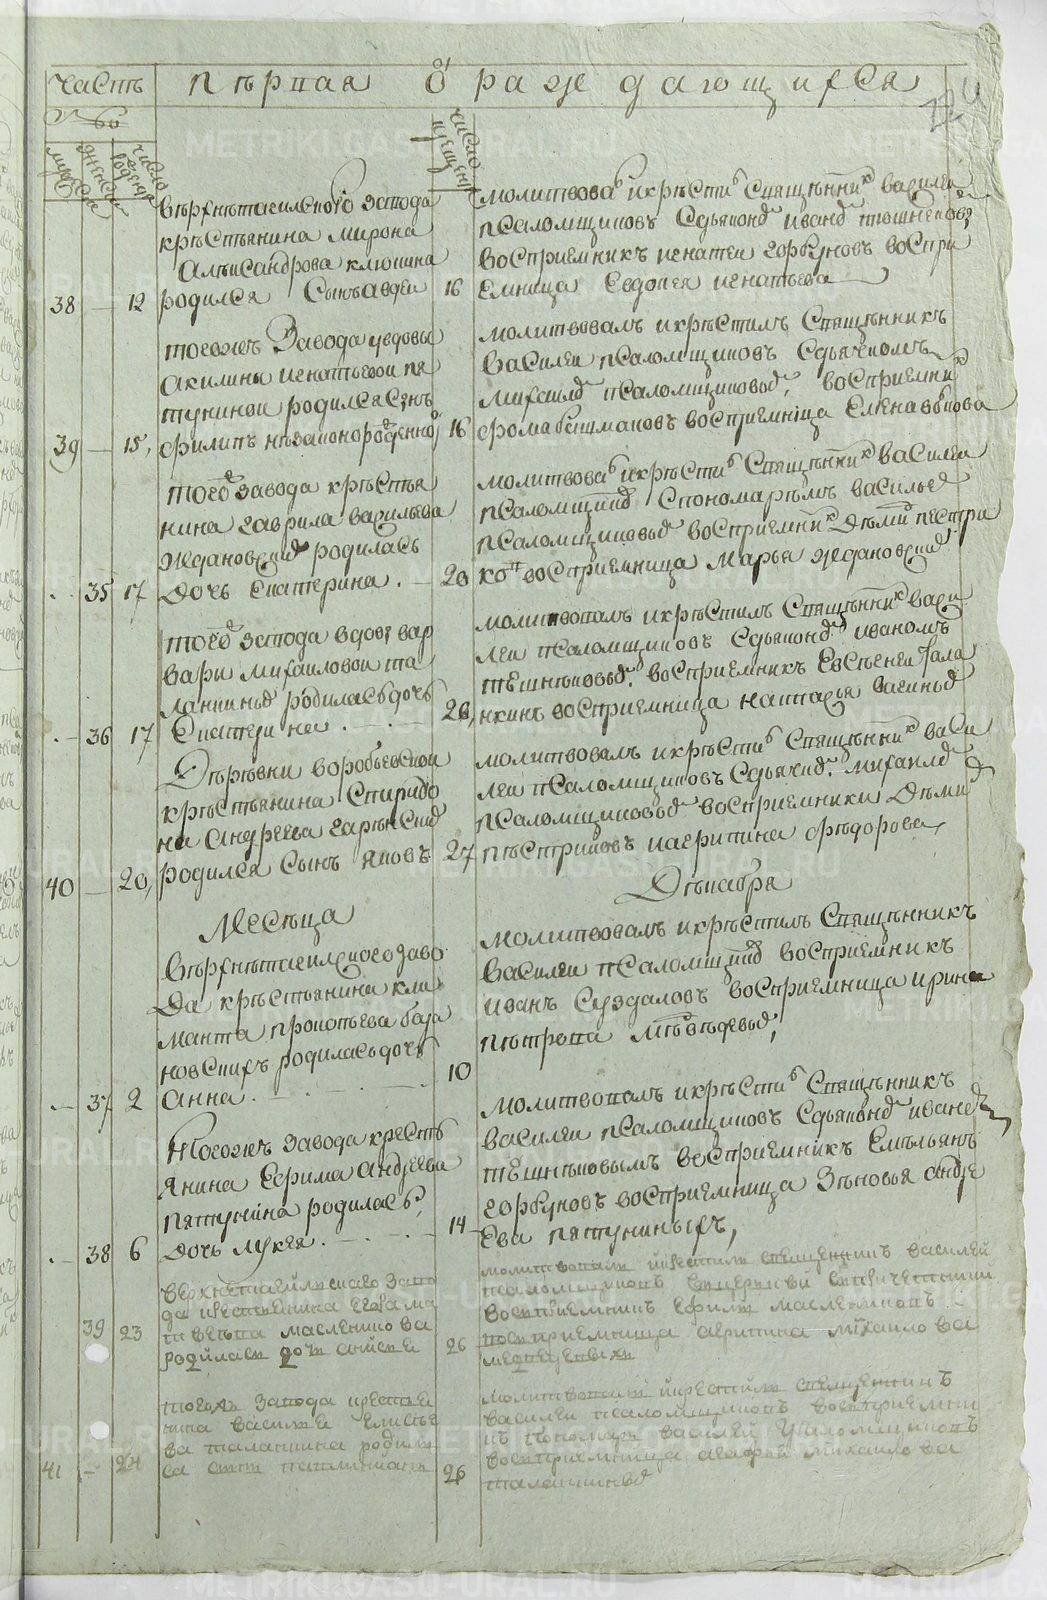 часть первая о раждающихся
№
мужеска
женска
число рожден
число крещен
верхнетагильского завода
крестьянина мирона
александрова клюкина
38 — 12 родился сынъ авдеи
16
молитвовал и крестил священник василеи
псаломщиковъ здьяконом иваном
восприемникъ игнатеи горбуновъ воспри
емница евдокея игнатьева
тогожъ завода вдовы
акилины игнатьевои пя
тунинои родился сынъ
39 — 15 филипъ незаконорожденно
16
молитвовалъ и крестилъ священникъ
василеи псаломщиковъ здьячкомъ
михаилом псаломщиковым, восприемник
фома башмаковъ восприемница елена
тогож завода крестья
нина гаврила васильева
ждановских родилась
35 17 дочь екатерина.
20
молитвовал и крестил священник василеи
псаломщиков спономаремъ васильем
псаломщиковым восприемник деми пестри
ков восприемница марья ждановских
тогож завода вдовы вар
вары михаиловои та
ланкиных родилась дочь
36 17 екатерина.
20
молитвовалъ и крестилъ священник васи
леи псаломщиковъ здьяконом иваномъ
восприемникъ евстегнеи гала
нкинъ восприемница настасья
деревни воробьевскои
крестьянина спиридо
на андреева
40 — 20 родился сынъ яковъ
27
молитвовалъ и крестил священник васи
леи псаломщиковъ здьячком михаилом
псаломщиковым восприемники деми
пестриковъ и агрипина федорова
Месеца Декабря
верхнетагилского заво
да крестьянина кли
манта прокопьева бажа
новскихъ родилась дочь
37 2 анна.
10
молитвовалъ и крестилъ священникъ
василеи псаломщиков восприемникъ
иванъ суздаловъ восприемница ирина
петрова медведевых,
тогожъ завода кресть
янина ефрима андреева
пятунина родилась,
38 6 дочь лукея.
14
молитвовалъ и крестил священникъ
василеи псаломщиковъ здьяконом иваном
восприемникъ емельянъ
горбуновъ восприемница зеновья андре
ева пятуниныхъ,
верхнетагилскаго заво
да крестьянина
масленикова
39 23 родилась дочь
26
молитвовали и крестили священникъ василей
псаломщиковъ
восприемникъ ефимъ маслениковъ
восприемница агрипина михаилова
тогожъ завода крестья
нина василья елисее
ва таланкина родил
41 — 24 ся сынъ
26
молитвовали и крестили священникъ
василеи псаломщиковъ восприемни
къ пономарь василей псаломщиковъ
восприемница агафья михаилова
таланкиных